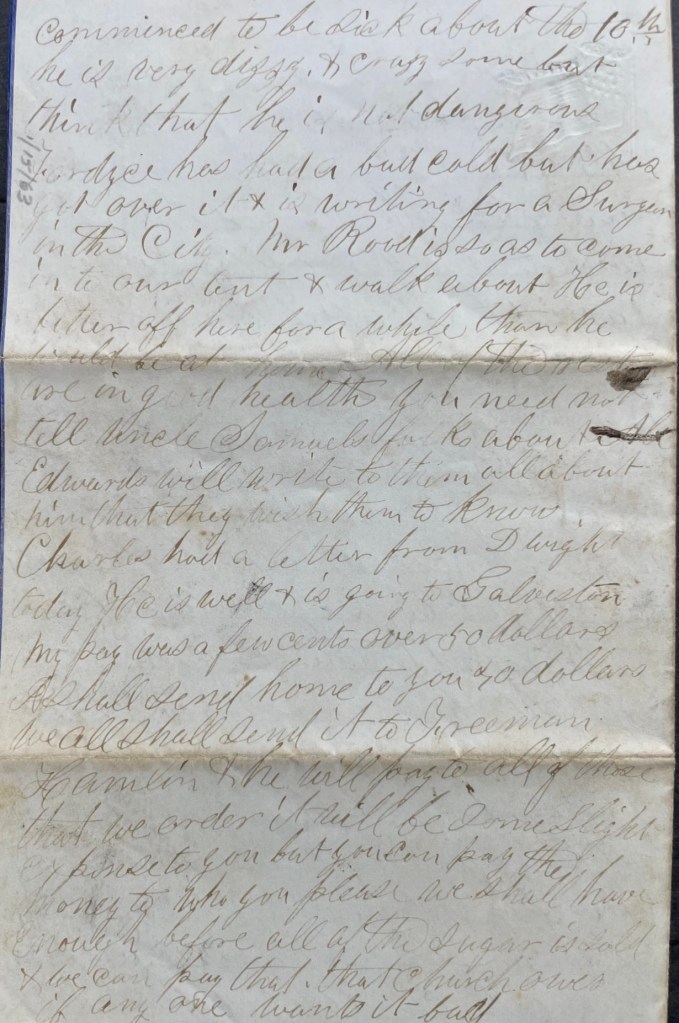 commenced to be sick about the 10th
he is very dizzy & crazy some but
think that he is not dangerous
Fordyce has had a bad cold but has
got over it & is writing for a Surgeon
in the City. Mr Rood is so as to come
in to our tent & walk about He is
better off here for a while than he
would be at home All the rest
are in good health You need not
tell Uncle Samuels folks about
Edwards will write to them all about
him that they wish them to know
Charles had a letter from Dwight
today He is well & is going to Galveston
My pay was a few cents over 50 dollars
I shall send home to you 40 dollars
We all shall send it to Freeman
Hamlin & he will pay to all of those
that we order it will be some slight
expense to you but you can pay the
money to who you please we shall have
enough before all of the sugar is sold
& we can pay that. that Church owes
if any one wants it bad
1/15/63